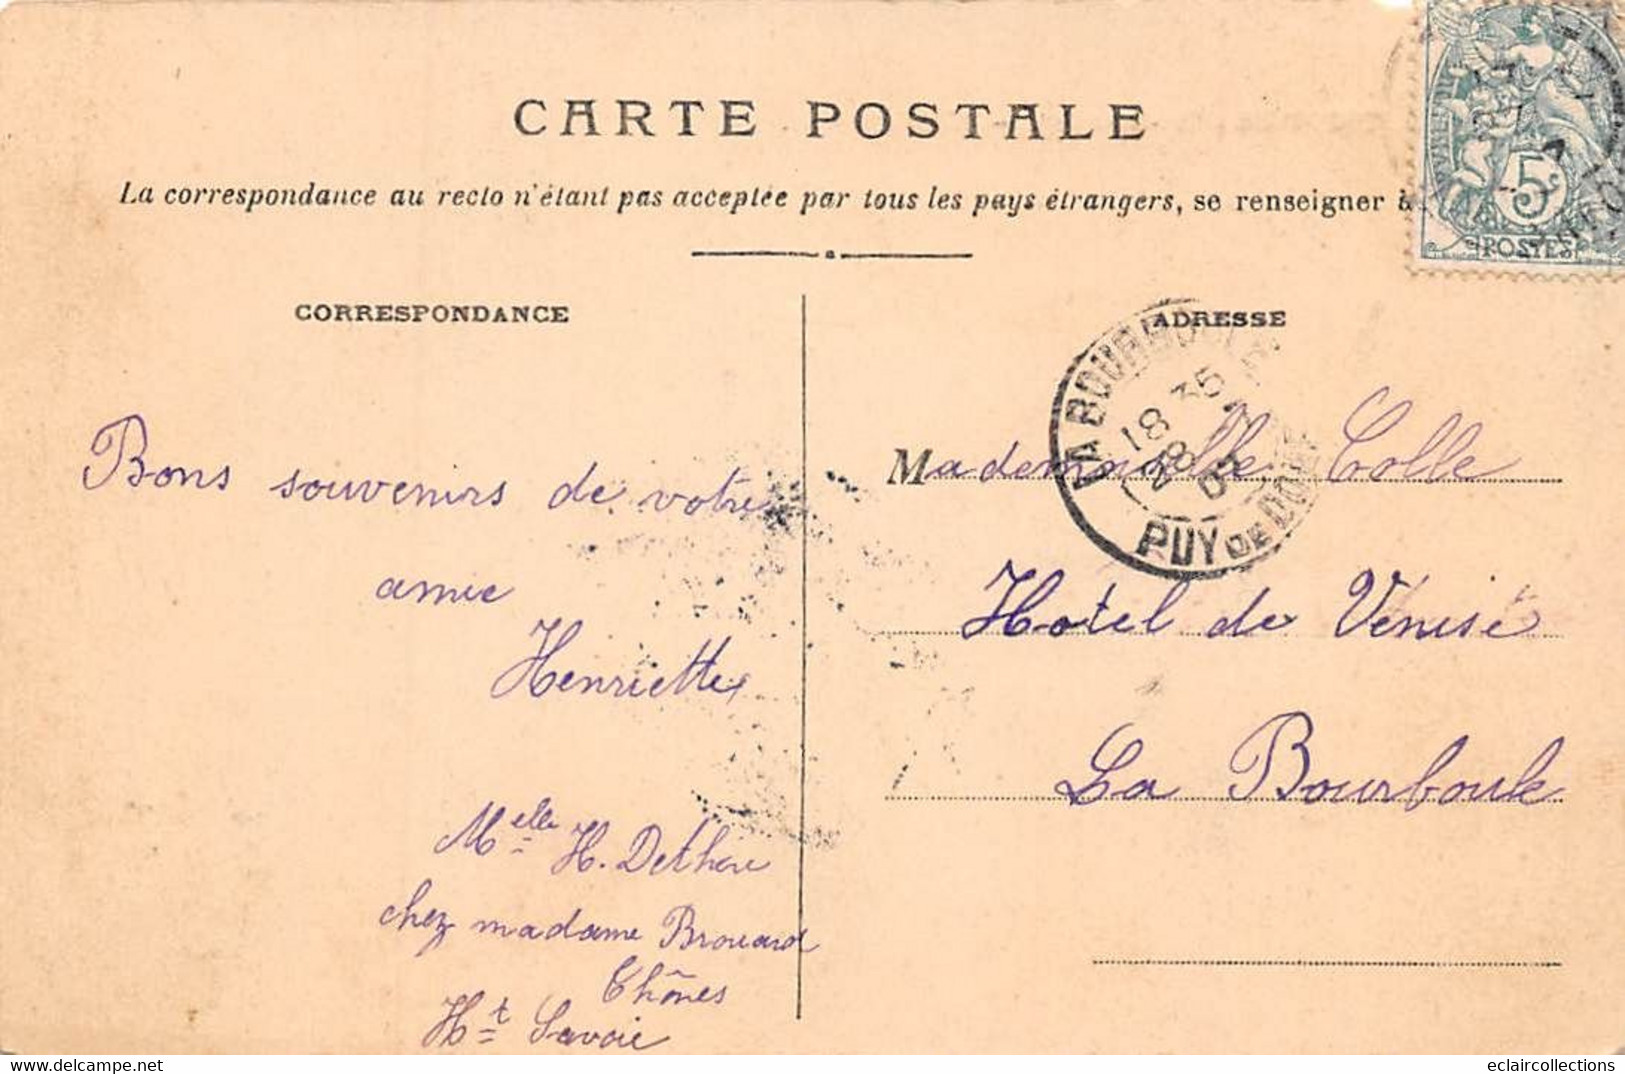 CARTE POSTALE
La correspondance au recto n'étant pas acceptée par tous les pays étrangers, se renseigner à
5c
POSTES
CORRESPONDANCE
ADRESSE
LA BOURBOULE
18 35
28
PUY DE DOME
Bons souvenirs de votre
amie
Henriette
Melle H. Dethere
chez madame Brouard
Thônes
Ht Savoie
Mademoiselle Colle
Hotel de Venise
La Bourboule
www.delcampe.net
eclaircollections